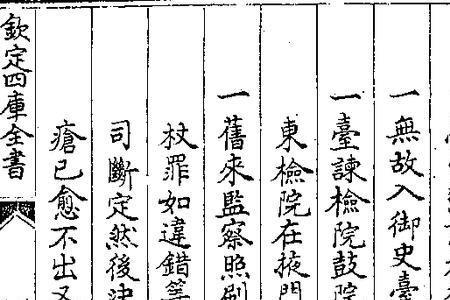 一無故入御史臺
一臺諫檢院鼓院
東檢院在掖門
一舊來監察照刷
杖罪如違錯等
司斷定然後決
瘡已愈不出又
欽定四庫全書